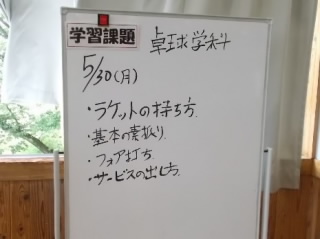 学習課題 卓球学科
5/30(月)
・ラケットの持ち方
・基本の素振り
・フォア打ち
・サービスの出し方